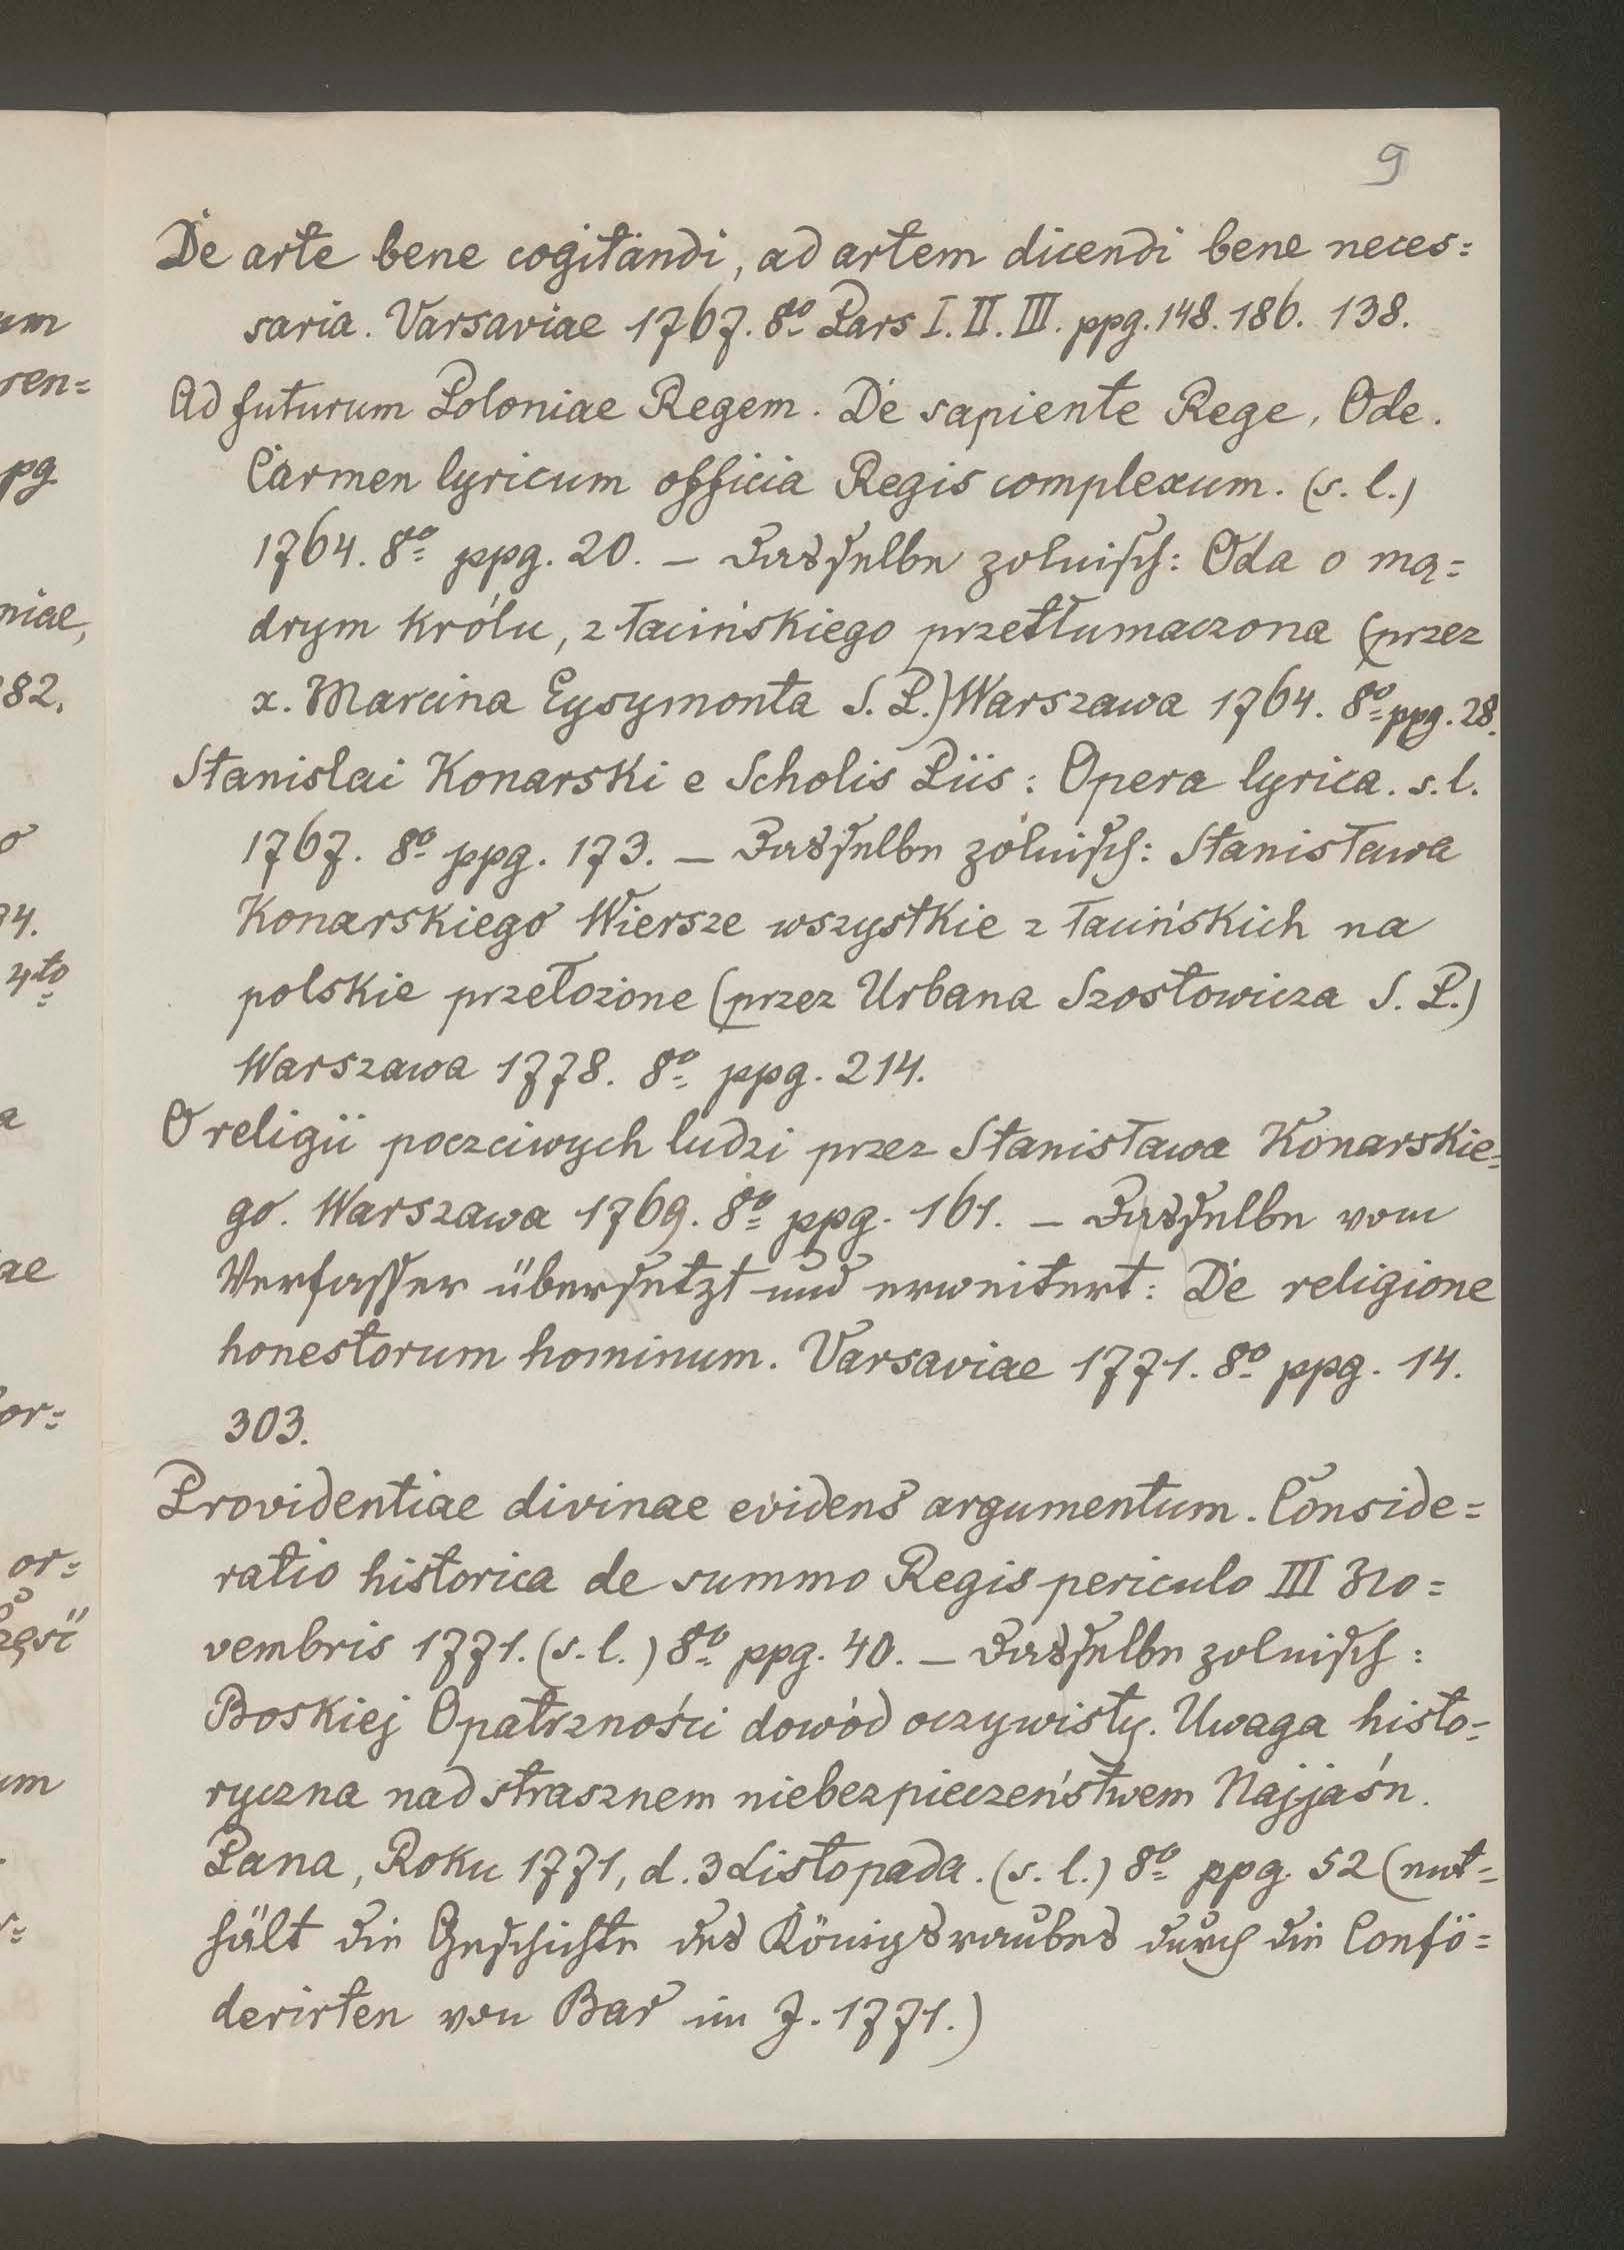 9
De arte bene cogitandi, ad artem dicendi bene neces=
saria. Varsaviae 1767. 8o Pars I. II. III. ppg. 148. 186. 138.
Ad futurum Poloniae Regem. De sapiente Rege, Ode.
Carmen lyricum officia Regis complexum. (s. l.)
1764. 8o ppg. 20. — Dasselbe polnisch: Oda o mą=
drym królu, z łacińskiego przetłumaczona (przez
x. Marcina Eysymonta S. P.) Warszawa 1764. 8o ppg. 28.
Stanislai Konarski e Scholis Piis: Opera lyrica. s. l.
1767. 8o ppg. 173. — Dasselbe polnisch: Stanisława
Konarskiego Wiersze wszystkie z łacińskich na
polskie przełożone (przez Urbana Szostowicza S. P.)
Warszawa 1778. 8o ppg. 214.
O religii poczciwych ludzi przez Stanisława Konarskie=
go. Warszawa 1769. 8o ppg. 161. — Dasselbe vom
Verfasser übersetzt und erweitert: De religione
honestorum hominum. Varsaviae 1771. 8o ppg. 14.
303.
Providentiae divinae evidens argumentum. Conside=
ratio historica de summo Regis periculo III No=
vembris 1771. (s. l.) 8o ppg. 40. — Dasselbe polnisch:
Boskiej Opatrzności dowód oczywisty. Uwaga histo=
ryczna nad strasznem niebezpieczeństwem Najjaśn.
Pana, Roku 1771, d. 3 Listopada. (s. l.) 8o ppg. 52 (ent=
hält die Geschichte des Königsraubes durch die Confö=
derirten von Bar im J. 1771.)